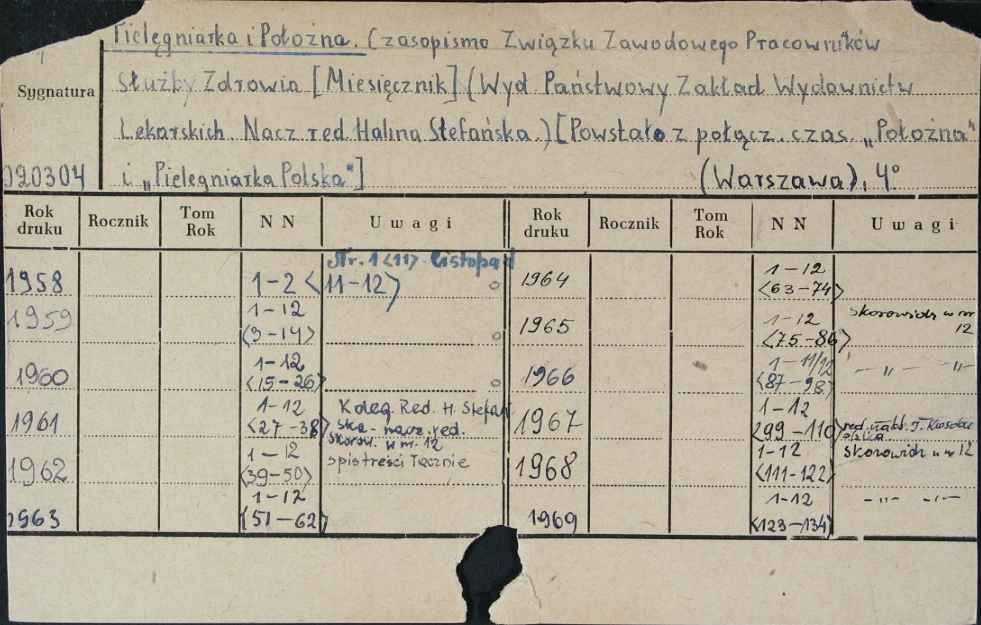 Pielęgniarka i Położna. Czasopismo Związku Zawodowego Pracowników
Służby Zdrowia [Miesięcznik] (Wyd. Państwowy Zakład Wydawnictw
Lekarskich. Nacz. red. Halina Stefańska.) [Powstało z połącz. czas. „Położna"
i „Pielęgniarka Polska"] (Warszawa), 4°
Sygnatura
020304
Rok druku Rocznik Tom Rok NN Uwagi Rok druku Rocznik Tom Rok NN Uwagi
Nr. 1 <11> listopad
1958 1-2 <11-12>
1959 1-12 <3-14>
1960 1-12 <15-26>
1961 1-12 <27-38> Koleg. Red. H. Stefańska - nacz. red.
skorow. w nr. 12
1962 1-12 <39-50> spis treści łącznie
1963 1-12 <51-62>
1964 1-12 <63-74>
1965 1-12 <75-86> skorowidz w nr 12
1966 1-11/12 <87-98> -"- -"-
1967 1-12 <99-110> red.
1968 1-12 <111-122> skorowidz w nr 12
1969 1-12 <123-134> -"- -"-